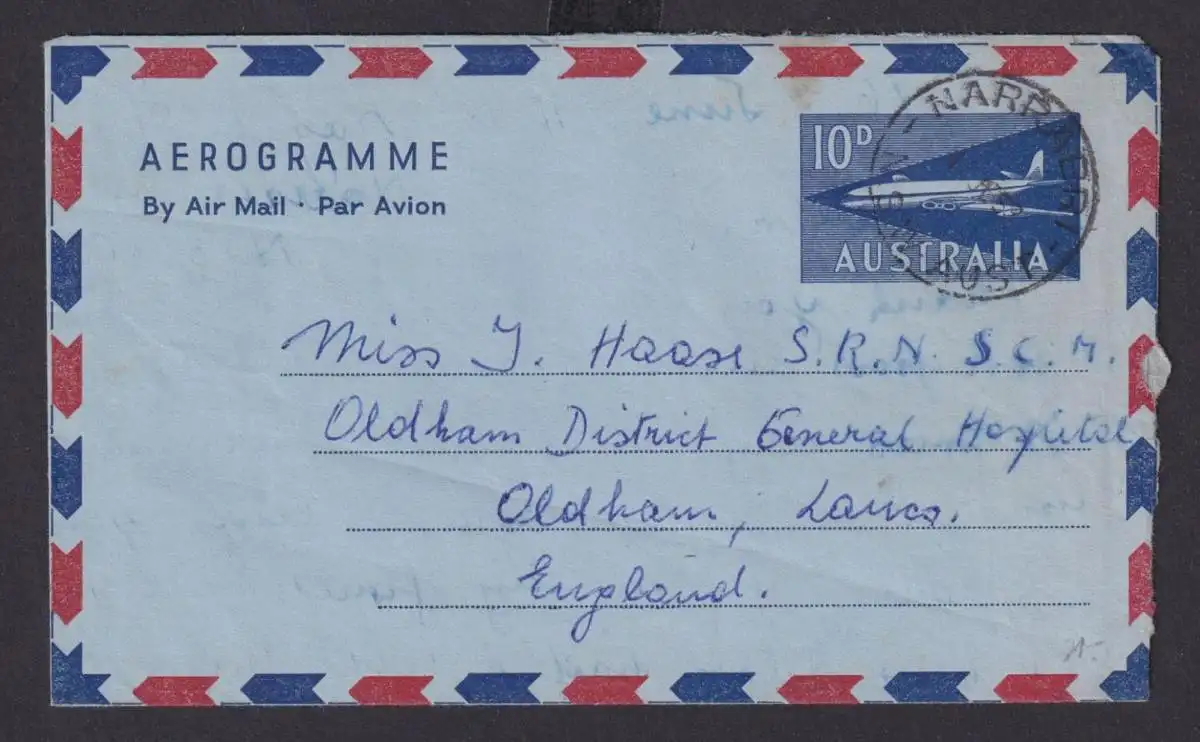 AEROGRAMME
By Air Mail · Par Avion
10D
AUSTRALIA
AUST
Miss J. Haase S.R.N. S.C.M.
Oldham District General Hospital
Oldham, Lancs.
England.